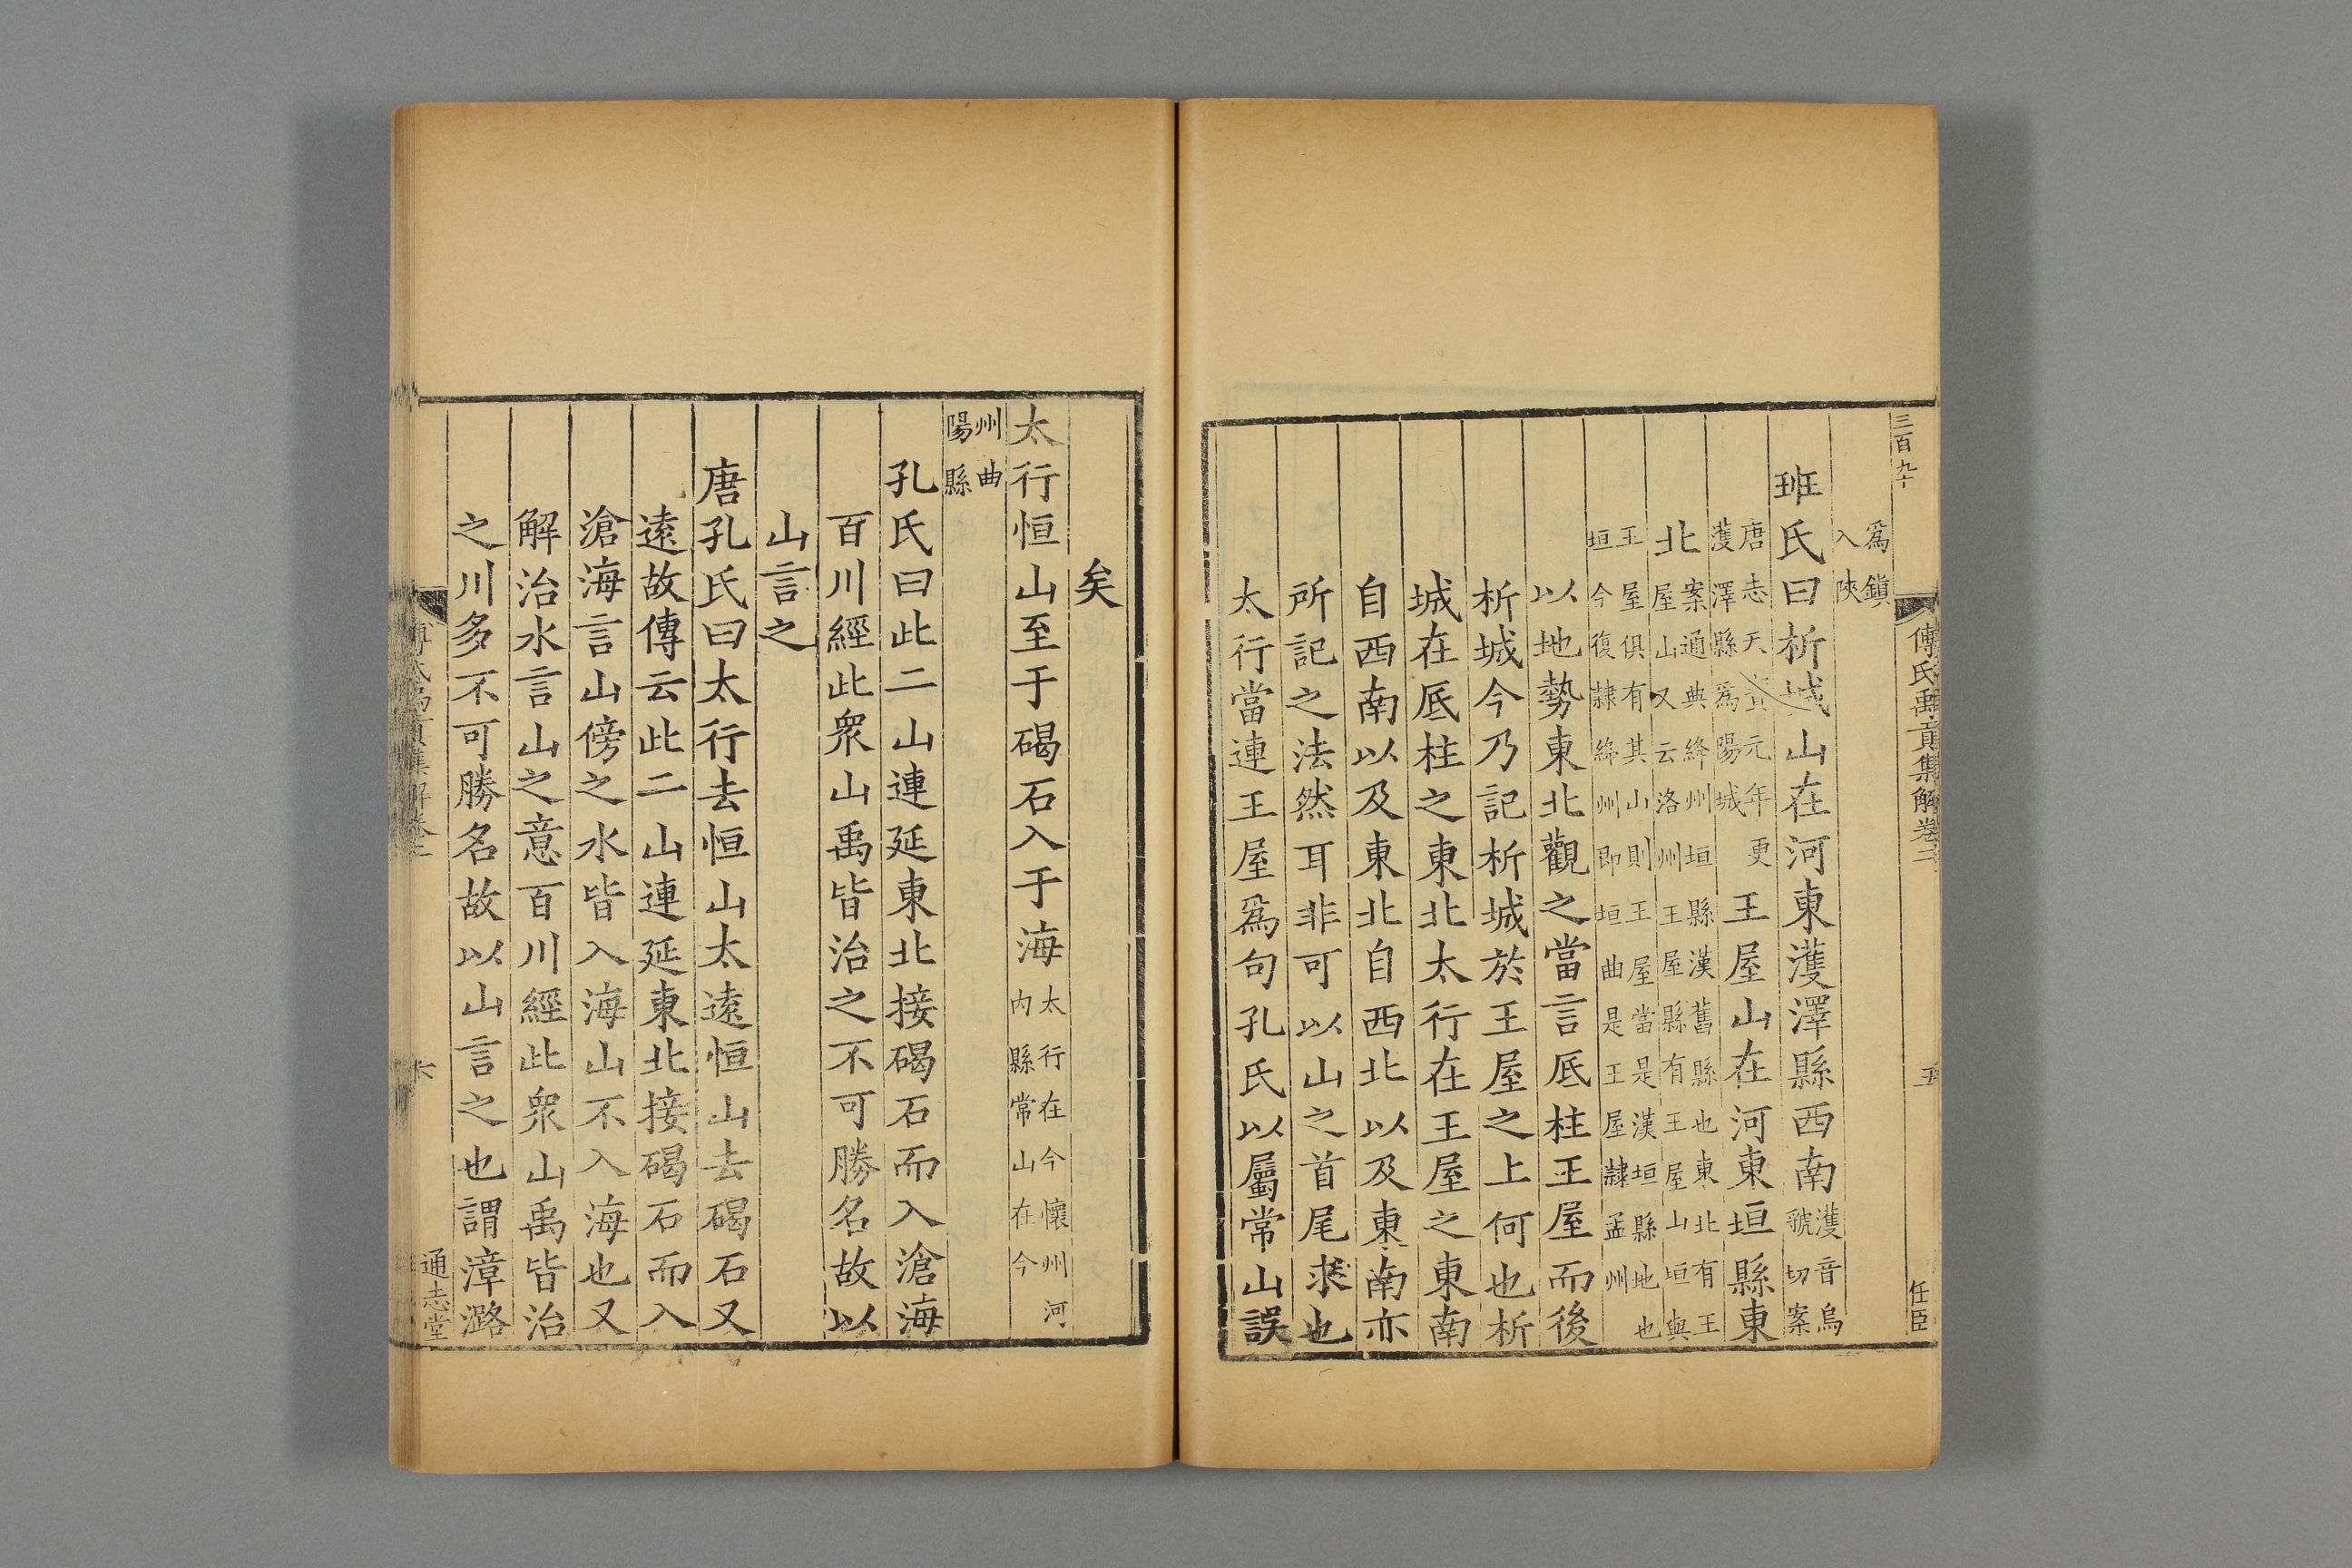 三百九十
傅氏禹貢集解卷二
五
任臣
爲鎮
入陜
班氏曰析城山在河東濩澤縣西南濩音烏
虢切案
唐志天寶元年更
濩澤縣爲陽城
王屋山在河東垣縣東
北案通典絳州垣縣漢舊縣也東北有王
屋山又云洛州王屋縣有王屋山垣與
王屋俱有其山則王屋當是漢垣縣地也
垣今復隸絳州即垣曲是王屋隸孟州
以地勢東北觀之當言底柱王屋而後
析城今乃記析城於王屋之上何也析
城在底柱之東北太行在王屋之東南
自西南以及東北自西北以及東南亦
所記之法然耳非可以山之首尾求也
太行當連王屋爲句孔氏以屬常山誤
矣
太行恒山至于碣石入于海太行在今懷州河
內縣常山在今
州曲
陽縣
孔氏曰此二山連延東北接碣石而入滄海
百川經此衆山禹皆治之不可勝名故以
山言之
唐孔氏曰太行去恒山太遠恒山去碣石又
遠故傳云此二山連延東北接碣石而入
滄海言山傍之水皆入海山不入海也又
解治水言山之意百川經此衆山禹皆治
之川多不可勝名故以山言之也謂漳潞
六
通志堂